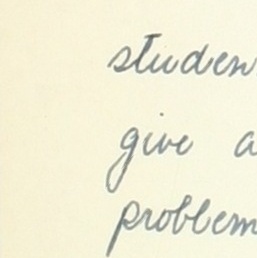 studen
give a
problem